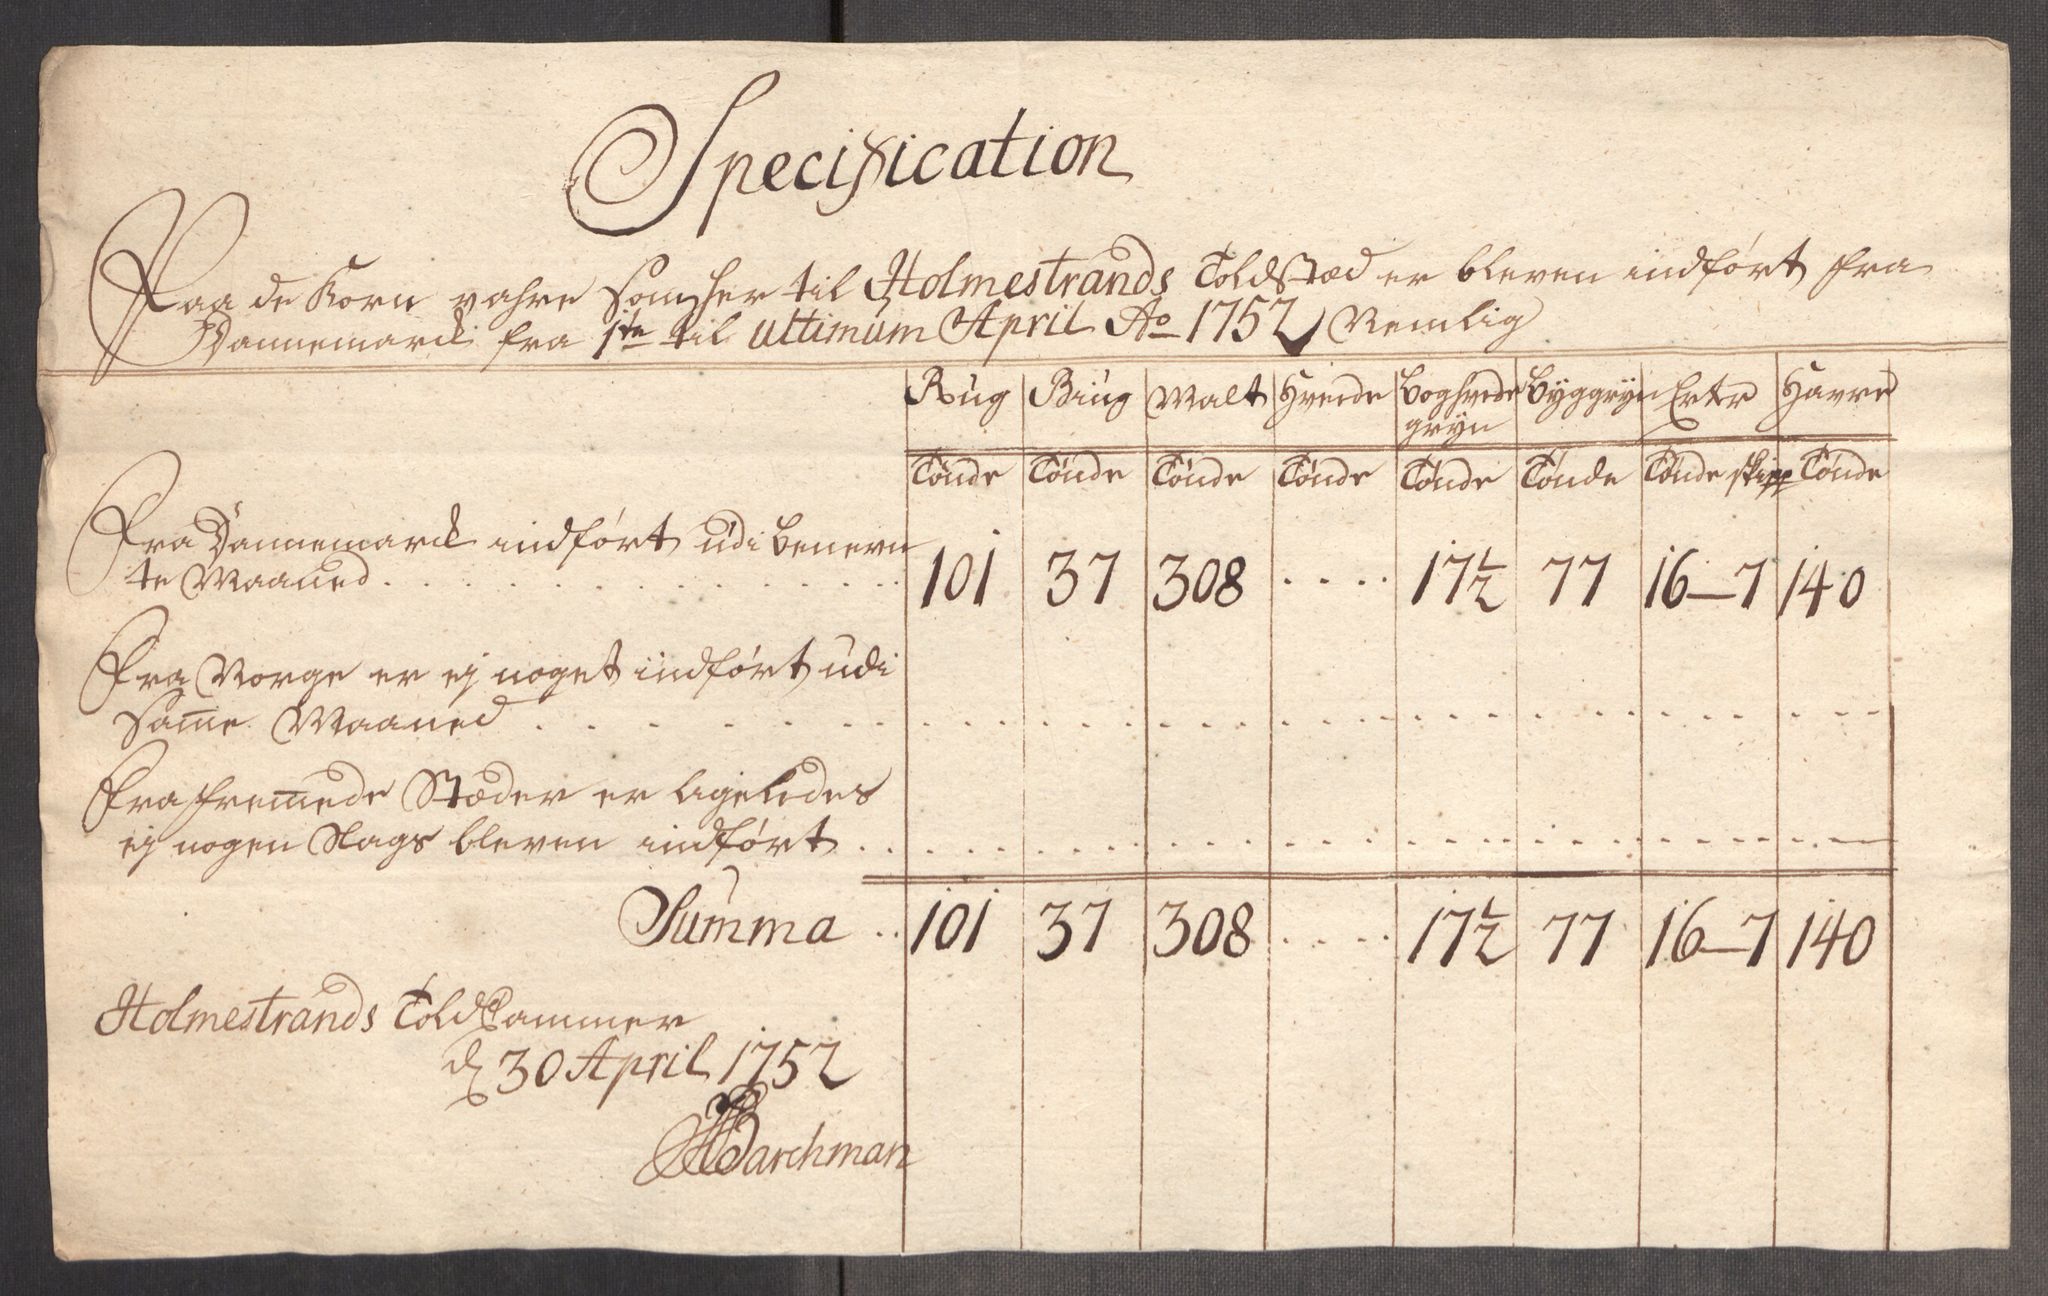 Specification
Paa de Korn vahre som her til Holmestrands Toldstæd er bleven indført fra
Dannemarck fra 1ste til ultimum April Ao 1752 Nemlig
Rug Biug Malt Hveede Boghvede Byggryn Erter Havre
gryn
Tønde Tønde Tønde Tønde Tønde Tønde Tønde skipp Tønde
Fra Dannemarck indført udi benevn
te Maaned . . . . 101 37 308 . . . . 17½ 77 16–7 140
Fra Norge er ej noget indført udi
Same Maaned . . . .
Fra fremede Stæder er ligeledes
ej nogen Slags bleven indført . . . .
Summa . . 101 37 308 . . . . 17½ 77 16–7 140
Holmestrands Toldkammer
d 30 April 1752
Barchman